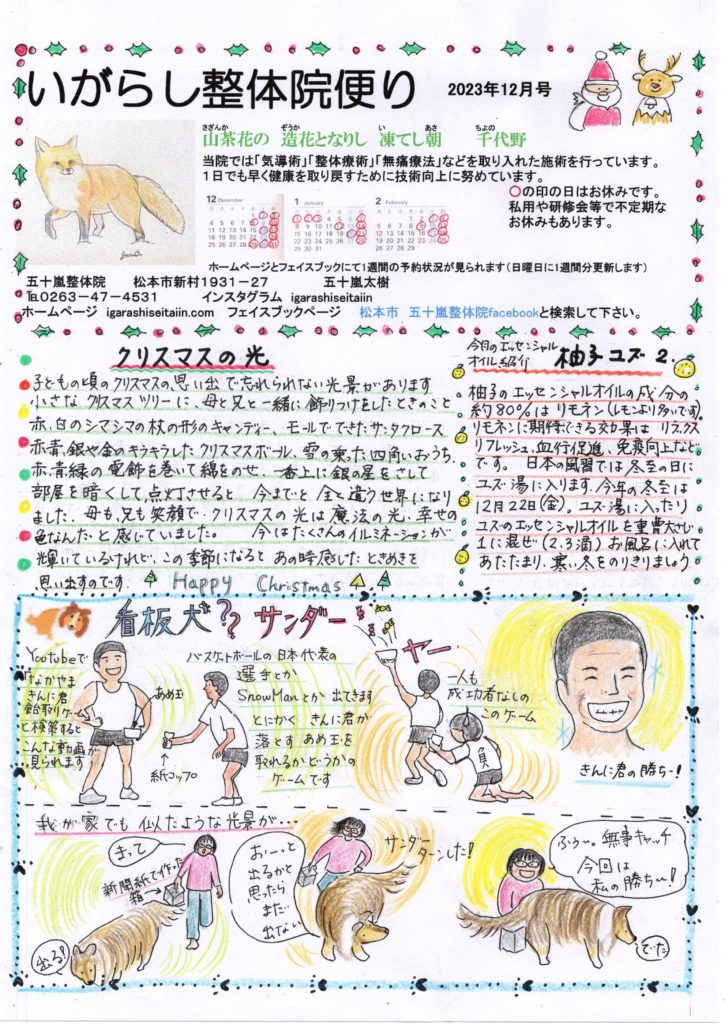 いがらし整体院便り
2023年12月号
さざんか ぞうか い あさ ちよの
山茶花の 造花となりし 凍てし朝 千代野
当院では「気導術」「整体療術」「無痛療法」などを取り入れた施術を行っています。
1日でも早く健康を取り戻すために技術向上に努めています。
〇の印の日はお休みです。
私用や研修会等で不定期な
お休みもあります。
12 December
1 January
2 February
ホームページとフェイスブックにて1週間の予約状況が見られます(日曜日に1週間分更新します)
五十嵐整体院 松本市新村1931-27 五十嵐太樹
℡0263-47-4531 インスタグラム igarashiseitaiin
ホームページ igarashiseitaiin.com フェイスブックページ 松本市 五十嵐整体院facebookと検索して下さい。
クリスマスの光
子どもの頃のクリスマスの思い出で忘れられない光景があります
小さなクリスマスツリーに、母と兄と一緒に飾りつけをしたときのこと
赤、白のシマシマの杖の形のキャンディー、モールでできたサンタクロース
赤、青、銀や金のキラキラしたクリスマスボール、雪の乗った四角いおうち、
赤、青、緑の電飾を巻いて綿をのせ、一番上に銀の星をさして
部屋を暗くして、点灯させると 今までと全く違う世界になり
ました。母も兄も笑顔で、クリスマスの光は魔法の光、幸せの
色なんだと感じていました。 今はたくさんのイルミネーションが
輝いているけれど、この季節になると あの時感じたときめきを
思い出すのです。 Happy Christmas
今月のエッセンシャル
オイル紹介 柚子 ユズ 2.
柚子のエッセンシャルオイルの成分の
約80%はリモネン(レモンより多いです)。
リモネンに期待できる効果は リラックス
リフレッシュ、血行促進、免疫向上など
です。 日本の風習では冬至の日に
ユズ湯に入ります。今年の冬至は
12月22日(金)。ユズ湯に入ったり
ユズのエッセンシャルオイルを重曹大さじ
1に混ぜ(2.3滴)お風呂に入れて
あたたまり、寒い冬をのりきりましょう
看板犬?? サンダー
Yootubeで
なかやま
きんに君
飴取りゲーム
と検索すると
こんな動画が
見られます
あめ玉
↑
紙コップ
バスケットボールの日本代表の
選手とか
SnowManとか 出てきます
とにかく きんに君が
落とす あめ玉を
取れるかどうかの
ゲームです
ヤー
一人も
成功者なしの
このゲーム
負
きんに君の勝ちー!
我が家でも 似たような光景が…
まって
新聞紙で作った
箱→
出る!
おーっと
出るかと
思ったら
まだ
出ない
サンダー
ターンした!
ふぅ〜。無事キャッチ
今回は
私の勝ち〜!
でた